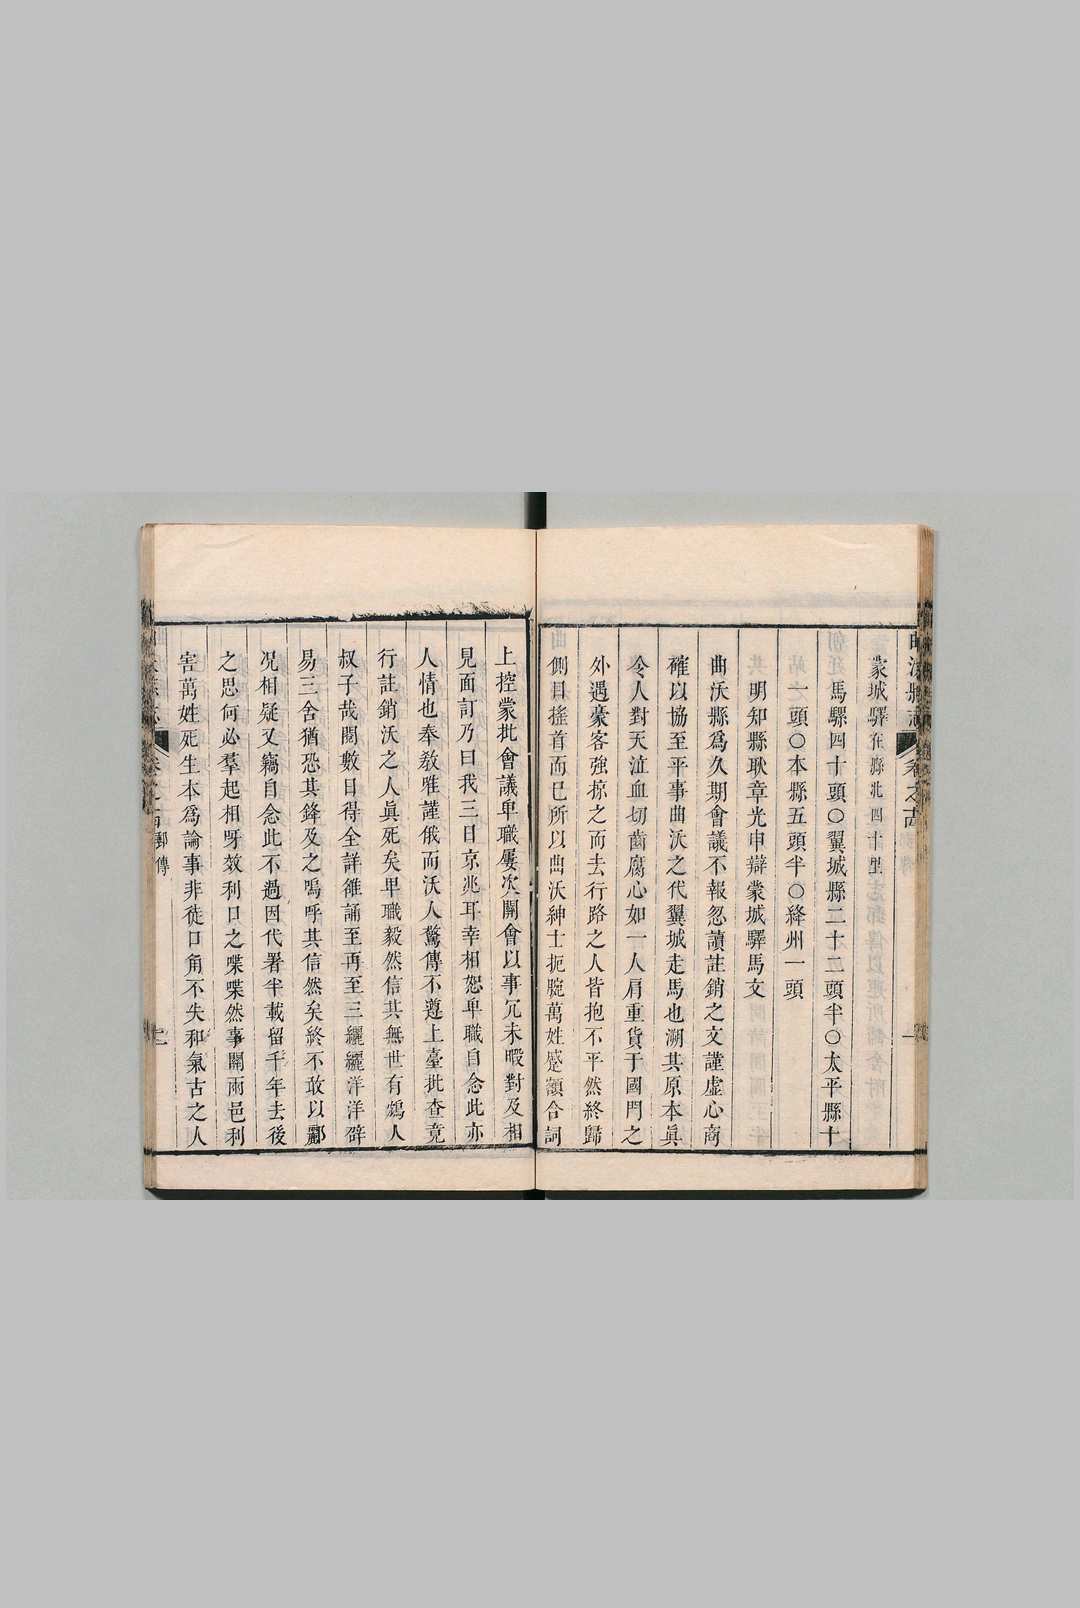 蒙城驛在縣北四十里
馬騾四十頭〇翼城縣二十二頭半〇太平縣十
一頭〇本縣五頭半〇絳州一頭
明知縣耿章光申辯蒙城驛馬文
曲沃縣爲久期會議不報忽讀註銷之文謹虛心商
確以協至平事曲沃之代翼城走馬也溯其原本眞
令人對天泣血切齒腐心如一人肩重貨于國門之
外遇豪客強掠之而去行路之人皆抱不平然終歸
側目搖首而已所以曲沃紳士扼腕萬姓蹙額合詞
上控蒙批會議卑職屢次關會以事冗未暇對及相
見面訂乃曰我三日京兆耳幸相恕卑職自念此亦
人情也奉敎唯謹俄而沃人驚傳不遵上臺批查竟
行註銷沃之人眞死矣卑職毅然信其無世有鴆人
叔子哉閱數日得全詳雒誦至再至三纚纚洋洋辟
易三舍猶恐其鋒及之嗚呼其信然矣終不敢以酈
况相疑又竊自念此不過因代署半載留千年去後
之思何必羣起相呀效利口之喋喋然事關兩邑利
害萬姓死生本爲論事非徒口角不失和氣古之人
曲沃縣志
卷之
郵傳